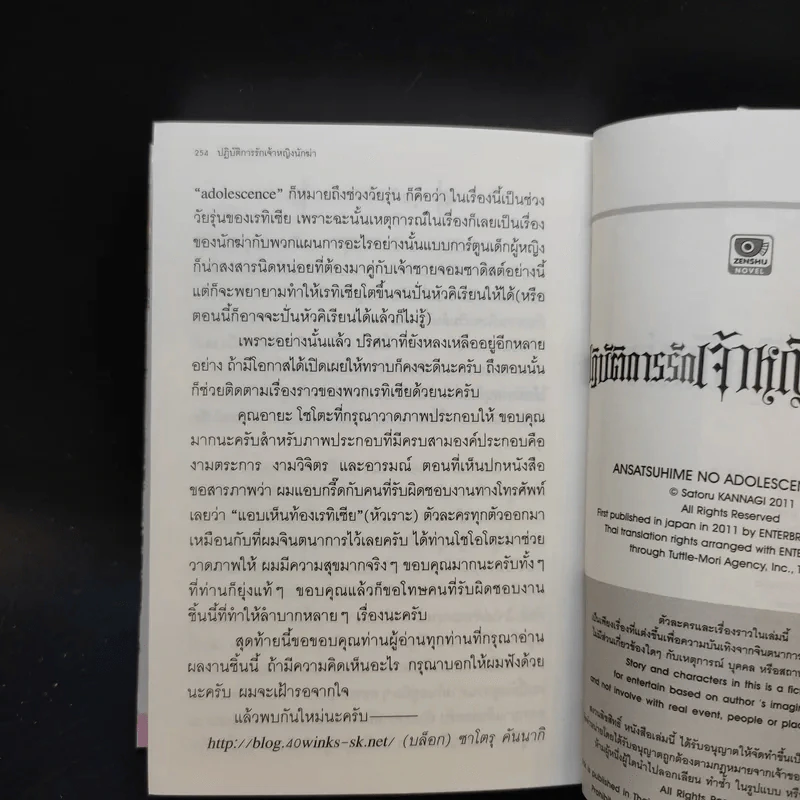 254 ปฏิบัติการรักเจ้าหญิงนักฆ่า
“adolescence” ก็หมายถึงช่วงวัยรุ่น ก็คือว่า ในเรื่องนี้เป็นช่วง
วัยรุ่นของเรทิเซีย เพราะฉะนั้นเหตุการณ์ในเรื่องก็เลยเป็นเรื่อง
ของนักฆ่ากับพวกแผนการอะไรอย่างนั้นแบบการ์ตูนเด็กผู้หญิง
ก็น่าสงสารนิดหน่อยที่ต้องมาคู่กับเจ้าชายจอมซาดิสต์อย่างนี้
แต่ก็จะพยายามทำให้เรทิเซียโตขึ้นจนปั่นหัวคิเรียนให้ได้(หรือ
ตอนนี้ก็อาจจะปั่นหัวคิเรียนได้แล้วก็ไม่รู้)
เพราะอย่างนั้นแล้ว ปริศนาที่ยังหลงเหลืออยู่อีกหลาย
อย่าง ถ้ามีโอกาสได้เปิดเผยให้ทราบก็คงจะดีนะครับ ถึงตอนนั้น
ก็ช่วยติดตามเรื่องราวของพวกเรทิเซียด้วยนะครับ
คุณอายะ โชโตะที่กรุณาวาดภาพประกอบให้ ขอบคุณ
มากนะครับสำหรับภาพประกอบที่มีครบสามองค์ประกอบคือ
งามตระการ งามวิจิตร และอารมณ์ ตอนที่เห็นปกหนังสือ
ขอสารภาพว่า ผมแอบกรี๊ดกับคนที่รับผิดชอบงานทางโทรศัพท์
เลยว่า “แอบเห็นท้องเรทิเซีย”(หัวเราะ) ตัวละครทุกตัวออกมา
เหมือนกับที่ผมจินตนาการไว้เลยครับ ได้ท่านโชโอโตะมาช่วย
วาดภาพให้ ผมมีความสุขมากจริงๆ ขอบคุณมากนะครับทั้งๆ
ที่ท่านก็ยุ่งแท้ๆ ขอบคุณแล้วก็ขอโทษคนที่รับผิดชอบงาน
ชิ้นนี้ที่ทำให้ลำบากหลายๆ เรื่องนะครับ
สุดท้ายนี้ขอขอบคุณท่านผู้อ่านทุกท่านที่กรุณาอ่าน
ผลงานชิ้นนี้ ถ้ามีความคิดเห็นอะไร กรุณาบอกให้ผมฟังด้วย
นะครับ ผมจะเฝ้ารอจากใจ
แล้วพบกันใหม่นะครับ———
http://blog.40winks-sk.net/ (บล็อก) ซาโตรุ คันนากิ
ZENSHU
NOVEL
ปฏิบัติการรักเจ้าหญิ
ANSATSUHIME NO ADOLESCEN
© Satoru KANNAGI 2011
All Rights Reserved
First published in japan in 2011 by ENTERBR
Thai translation rights arranged with ENTE
through Tuttle-Mori Agency, Inc., T
ตัวละครและเรื่องราวในเล่มนี้
เป็นเพียงเรื่องที่แต่งขึ้นเพื่อความบันเทิงจากจินตนาการ
ไม่มีส่วนเกี่ยวข้องใดๆ กับเหตุการณ์ บุคคล หรือสถา
Story and characters in this is a fic
for entertain based on author 's imagin
and not involve with real event, people or plac
หนังสือเล่มนี้ ได้รับอนุญาตให้จัดทำขึ้นเป็น
ได้รับอนุญาตถูกต้องตามกฎหมายจากเจ้าของ
ห้ามผู้หนึ่งผู้ใดนำไปลอกเลียน ทำซ้ำ ในรูปแบบ หรือ
All Rights Res
is published in Thai